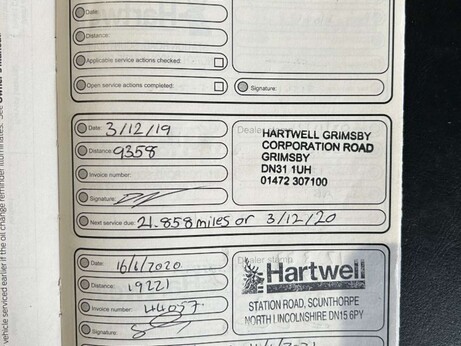 Date:
Distance:
Applicable service actions checked:
Open service actions completed:
Signature:
Date: 3/12/19
Distance: 9358
Invoice number:
Signature:
Next service due: 21.858 miles or 3/12/20
Dealer
HARTWELL GRIMSBY
CORPORATION ROAD
GRIMSBY
DN31 1UH
01472 307100
Date: 16/6/2020
Distance: 19221
Invoice number: 44057
Signature:
Dealer stamp
Hartwell
STATION ROAD, SCUNTHORPE
NORTH LINCOLNSHIRE DN15 6PY
vehicle serviced earlier if the oil change reminder illuminates. See Owner's